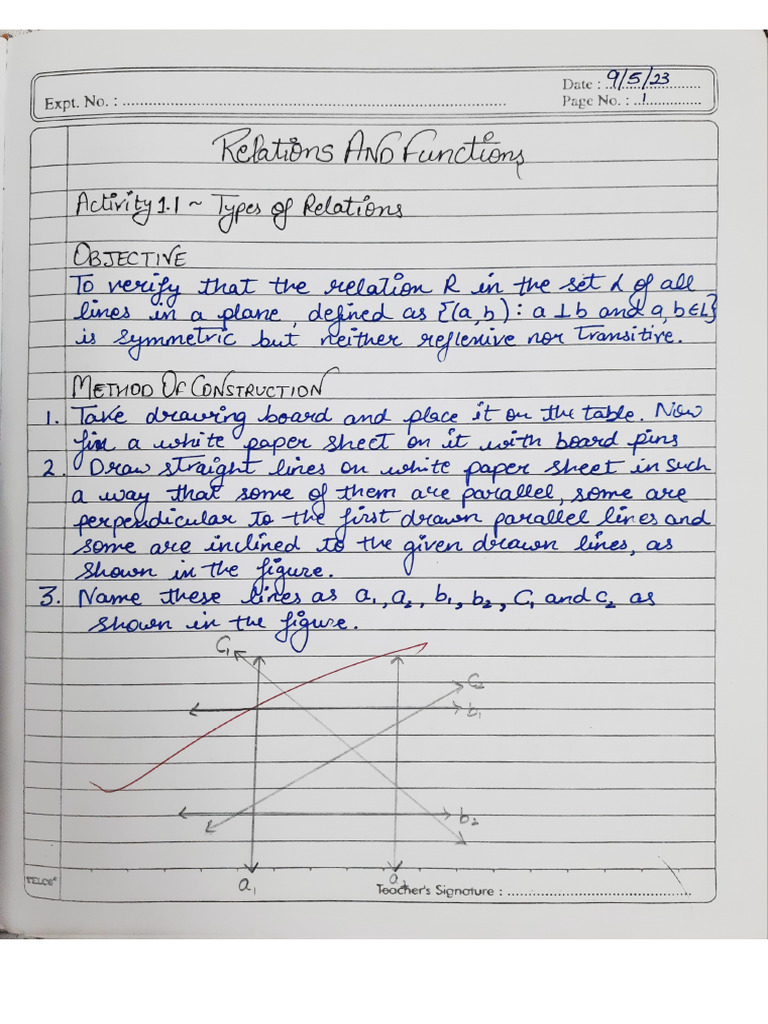 Date : 9/5/23
Expt. No. :
Page No. : 1
Relations AND Functions
Activity 1.1 ~ Types of Relations
OBJECTIVE
To verify that the relation R in the set L of all
lines in a plane, defined as {(a,b) : a ⊥ b and a, b ∈ L}
is symmetric but neither reflexive nor transitive.
METHOD OF CONSTRUCTION
1. Take drawing board and place it on the table. Now
fix a white paper sheet on it with board pins
2. Draw straight lines on white paper sheet in such
a way that some of them are parallel, some are
perpendicular to the first drawn parallel lines and
some are inclined to the given drawn lines, as
shown in the figure.
3. Name these lines as a₁, a₂, b₁, b₂, C₁ and c₂ as
shown in the figure.
C₁
C₂
b₁
b₂
a₁
a₂
Teacher's Signature :